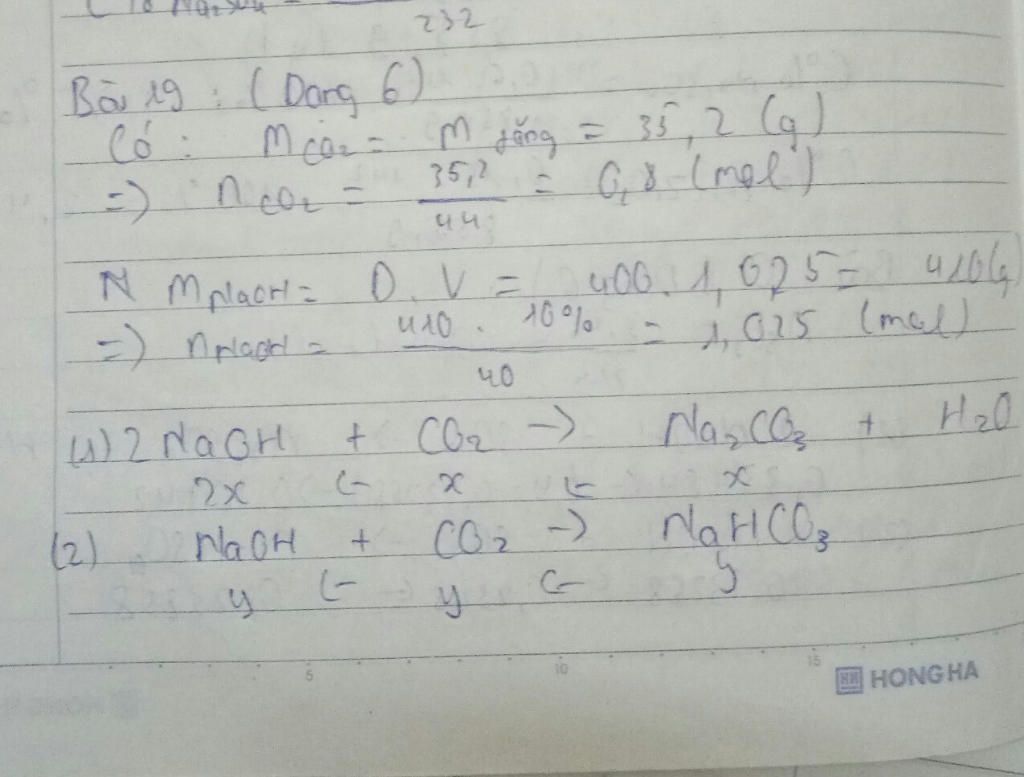 232
Bài 19 : (Dạng 6)
Có : m CO2 = m tăng = 35,2 (g)
=> n CO2 = 35,2 / 44 = 0,8 (mol)
m NaOH = D. V = 400. 1,025 = 410(g)
=> n NaOH = 410 . 10% / 40 = 1,025 (mol)
(1) 2 NaOH + CO2 -> Na2CO3 + H2O
2x <- x <- x
(2) NaOH + CO2 -> NaHCO3
y <- y <- y
5 10 15
HONG HA